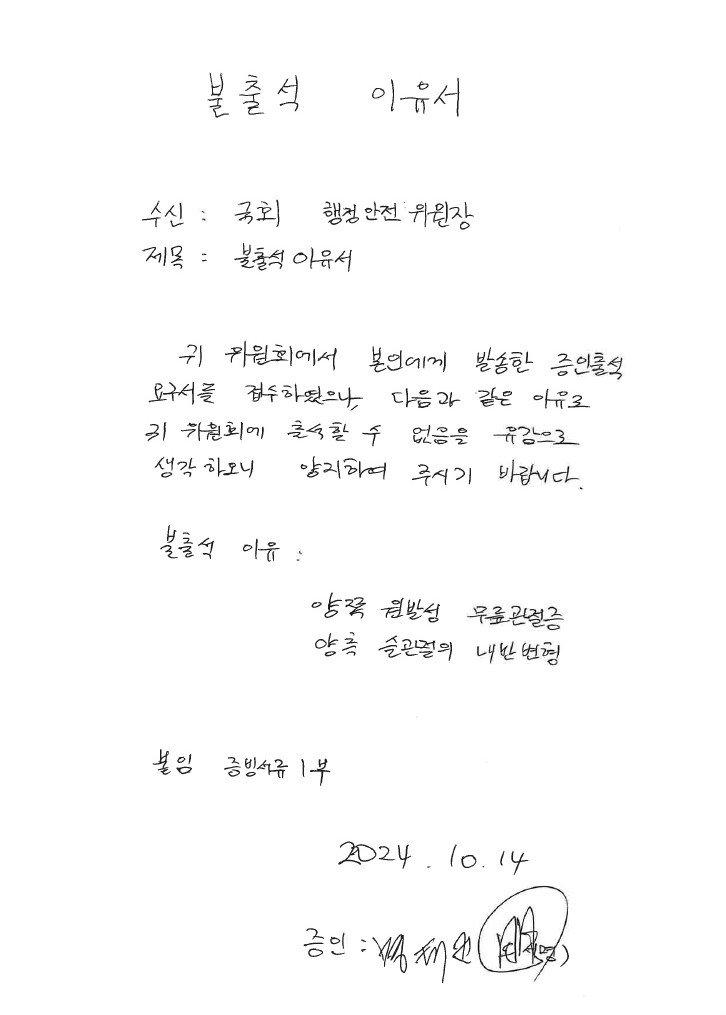 불출석 이유서
수신 : 국회 행정안전위원장
제목 : 불출석 이유서
귀 위원회에서 본인에게 발송한 증인출석
요구서를 접수하였으나, 다음과 같은 이유로
귀 위원회에 출석할 수 없음을 유감으로
생각하오니 양지하여 주시기 바랍니다.
불출석 이유 :
양쪽 원발성 무릎관절증
양측 슬관절의 내반변형
붙임 증빙서류 1부
2024. 10. 14
증인 :